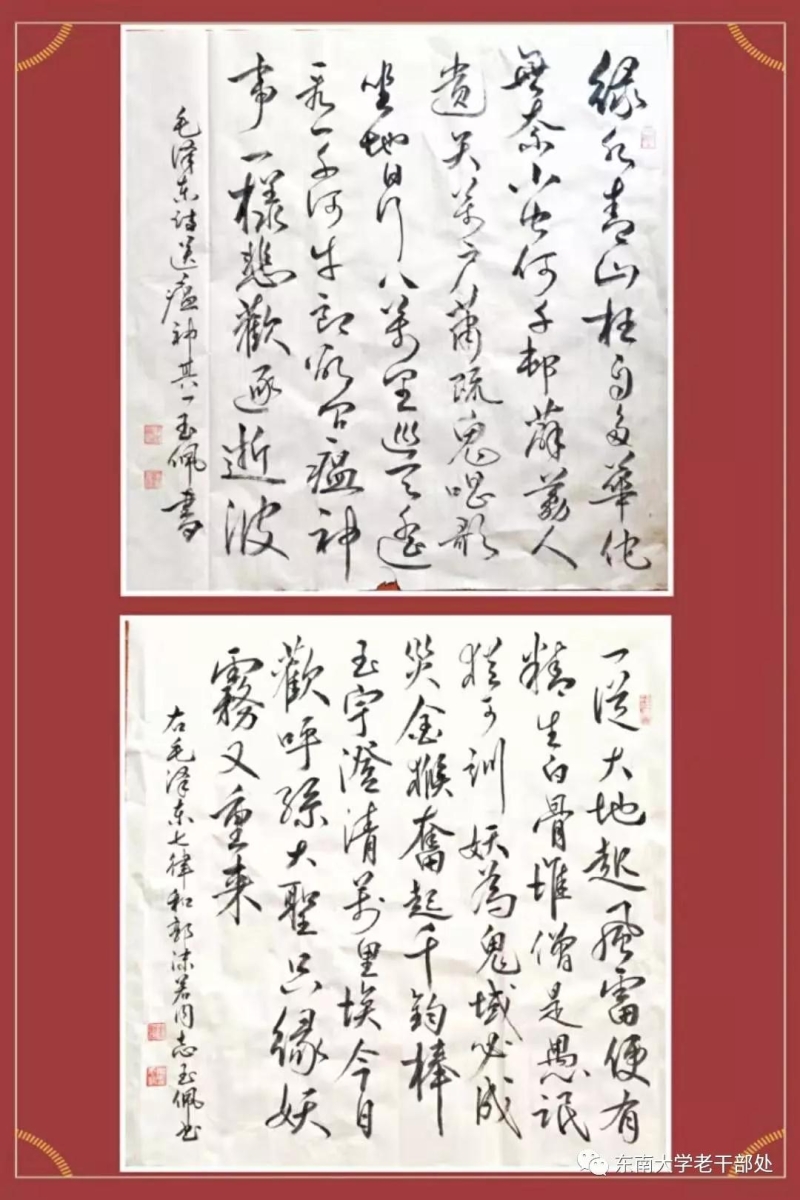 緑水青山枉自多華佗
無奈小虫何千邨薜荔人
遗矢萬户蕭疏鬼唱歌
坐地日行八萬里巡天遥
看一千河牛郎欲问瘟神
事一樣悲歡逐逝波
毛泽东诗送瘟神其一玉佩書
一從大地起風雷便有
精生白骨堆僧是愚氓
猶可訓妖為鬼域必成
災金猴奮起千鈞棒
玉宇澄清萬里埃今日
歡呼孫大聖只緣妖
霧又重来
右毛泽东七律和郭沫若同志玉佩书
东南大学老干部处